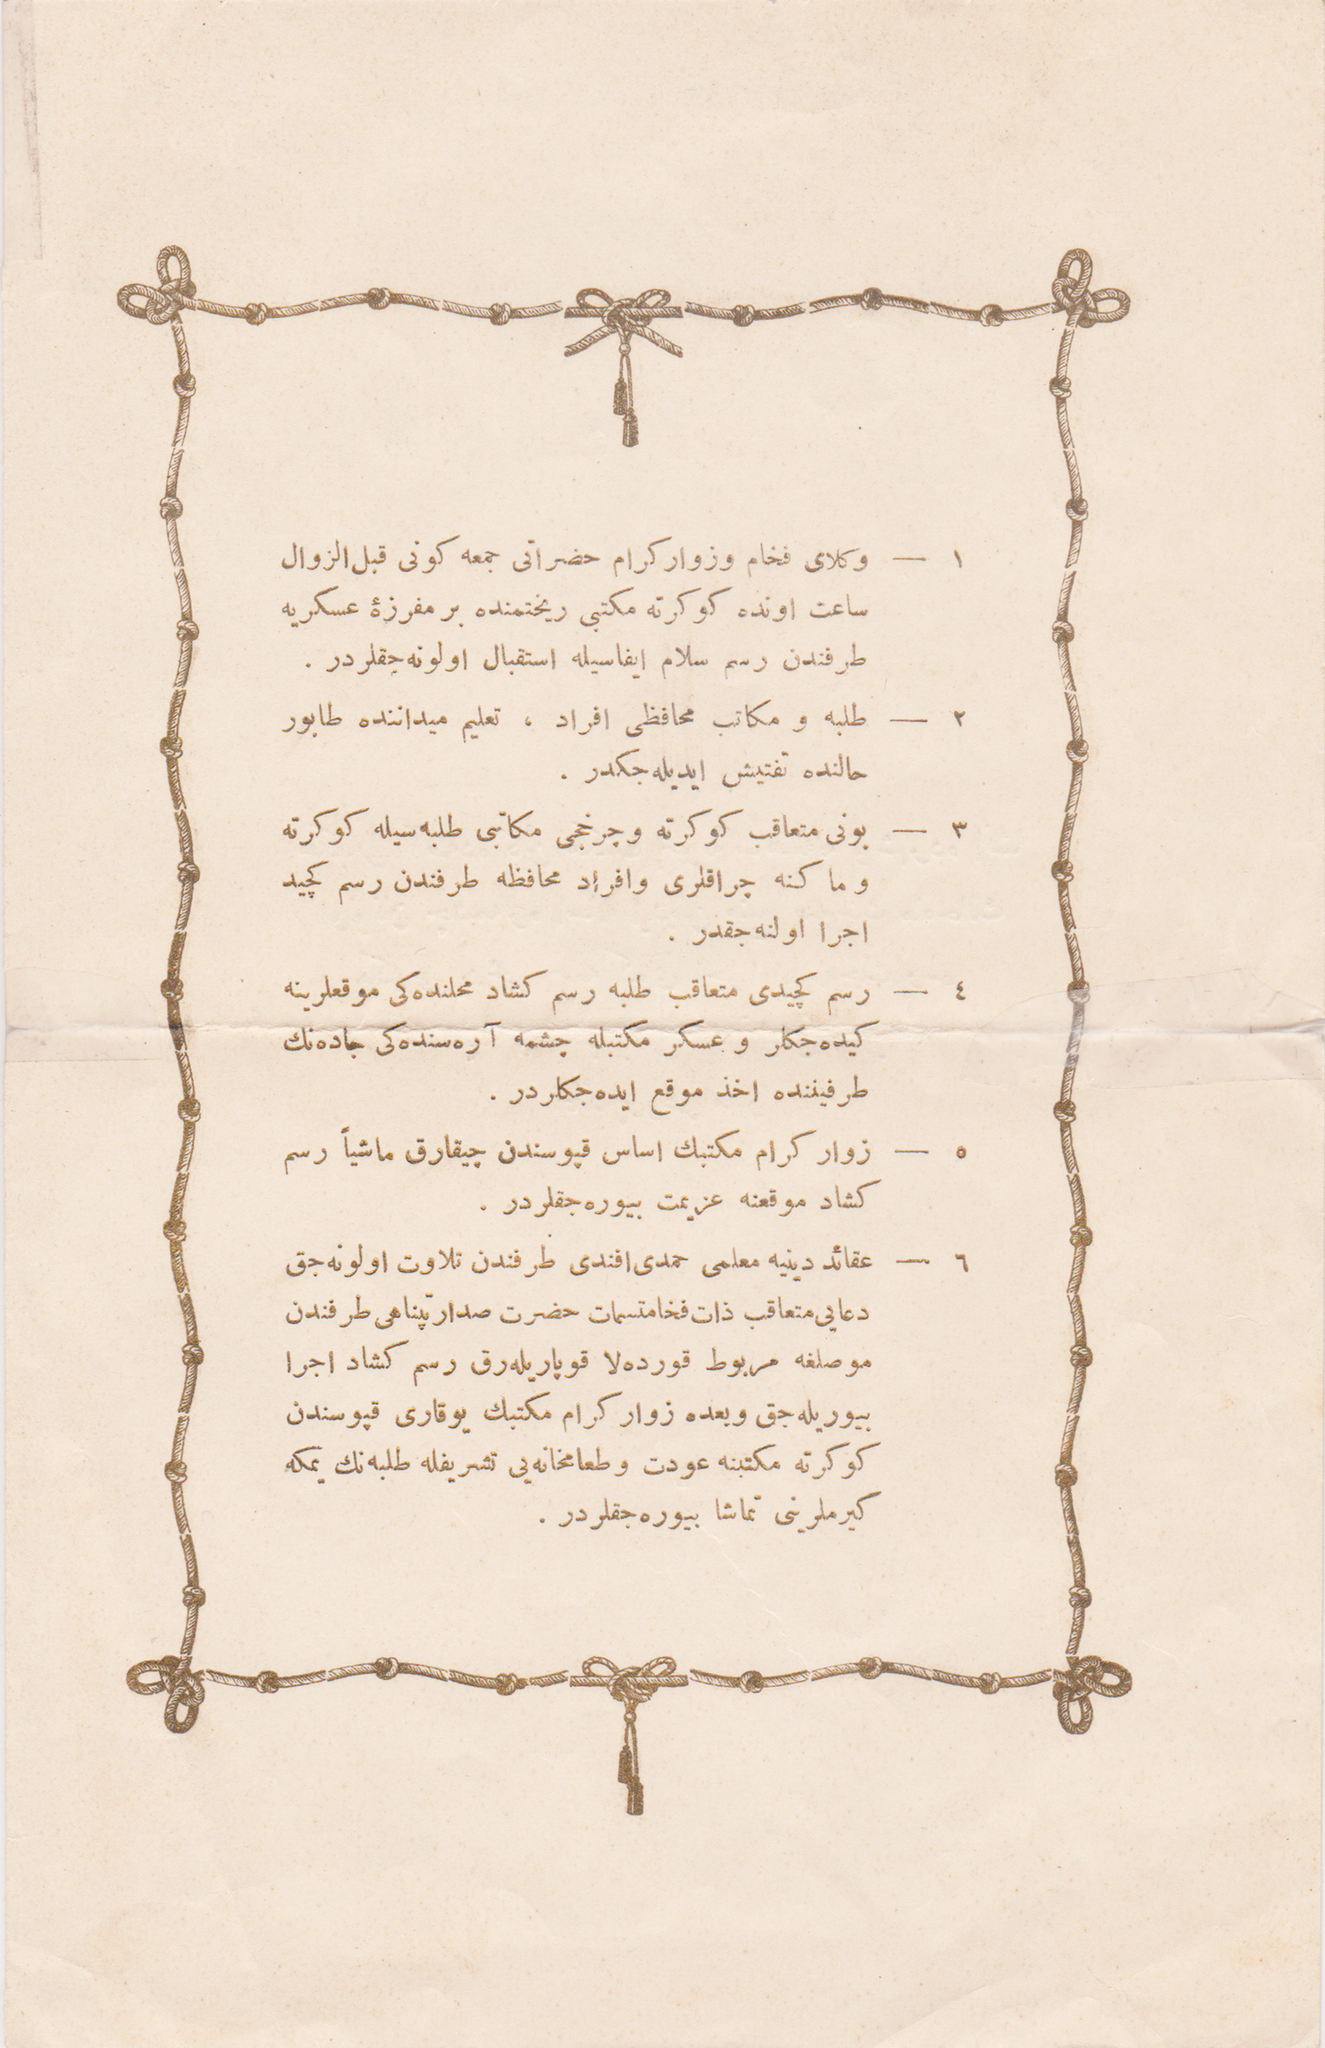 ١ — وكلای فخام و زوار كرام حضراتی جمعه كونی قبل‌الزوال
ساعت اونده كوكرته مكتبی ریختمنده بر مفرزهٔ عسكریه
طرفندن رسم سلام ایفاسیله استقبال اولونه‌جقلردر .
٢ — طلبه و مكاتب محافظی افراد ، تعلیم میداننده طابور
حالنده تفتیش ایدیله‌جكدر .
٣ — بونی متعاقب كوكرته و چرخجی مكاتبی طلبه‌سیله كوكرته
و ماكنه چراقلری و افراد محافظه طرفندن رسم كچید
اجرا اولنه‌جقدر .
٤ — رسم كچیدی متعاقب طلبه رسم كشاد محلنده‌كی موقعلرینه
كیده‌جكلر و عسكر مكتبله چشمه آره‌سنده‌كی جاده‌نك
طرفیننده اخذ موقع ایده‌جكلردر .
٥ — زوار كرام مكتبك اساس قپوسندن چیقارق ماشیاً رسم
كشاد موقعنه عزیمت بیوره‌جقلردر .
٦ — عقائد دینیه معلمی حمدی افندی طرفندن تلاوت اولونه‌جق
دعایی متعاقب ذات فخامتسمات حضرت صدارتپناهی طرفندن
موصلغه مربوط قورده‌لا قوپاریله‌رق رسم كشاد اجرا
بیوریله‌جق و بعده زوار كرام مكتبك یوقاری قپوسندن
كوكرته مكتبنه عودت و طعامخانه‌یی تشریفله طلبه‌نك یمكه
كیرملرینی تماشا بیوره‌جقلردر .